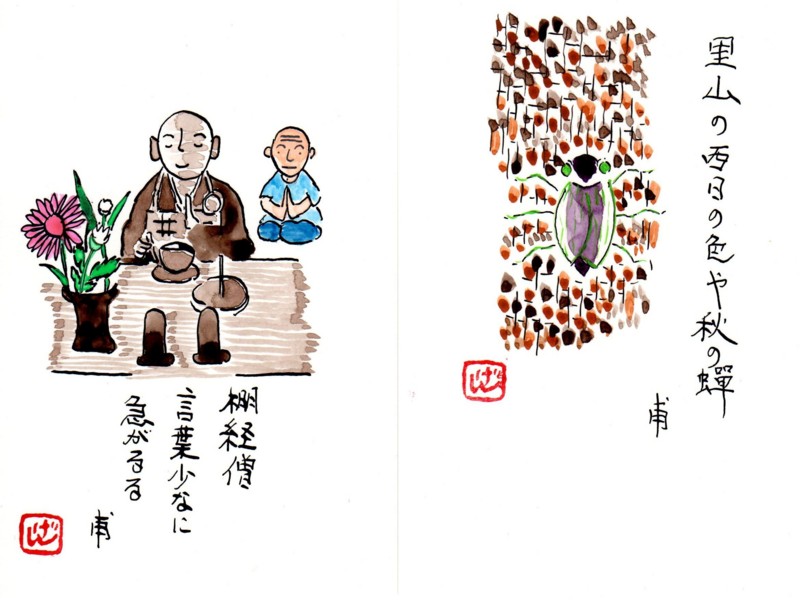 里山の西日の色や秋の蟬
甫
げん
棚経僧
言葉少なに
急がるる
甫
げん